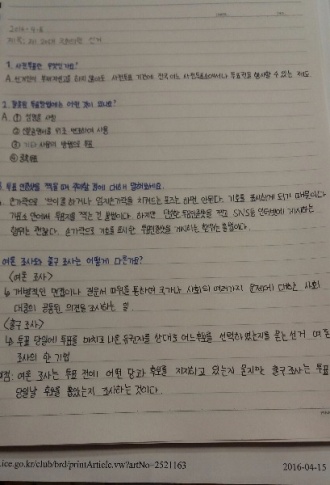 2016-4-6
1. 사전투표란 무엇인가요?
A. 선거인이 부재자신고를 하지 않아도 사전투표 기간에 전국 어느 사전투표소에서나 투표권을 행사할 수 있는 제도
2. 잘못된 투표방법에는 어떤 것이 있나요?
A. ①
②
③ 기타 사람의 방법으로 투표
④
투표 인증샷을 찍을 때 주의할 점에 대해 말해보세요.
손가락으로 브이를 하거나 엄지손가락을 치켜드는 포즈는 하면 안된다. 기호를 표시하게 되기 때문이다
기표소 안에서 투표지를 찍는 건 불법이다. 하지만 인증샷을 찍어 SNS등 인터넷에 게시하는
행위는 괜찮다. 손가락으로 기호를 표시한 투표인증샷을 게시하는 행위는 불법이다.
여론 조사와 출구 조사는 어떻게 다른가요?
<여론 조사>
개별적인 면접이나 질문서 따위를 통하여 국가나 사회의 여러가지 문제에 대한 사회
대중의 공통된 의견을 조사하는 일
<출구 조사>
투표 당일에 투표를 마치고 나온 유권자를 상대로 어느 후보를 선택하였는지를 묻는 선거 여론
조사의 한 기법
여론 조사는 투표 전에 어떤 당과 후보를 지지하고 있는지 묻지만 출구 조사는 투표
당일날 후보를 뽑았는지 조사하는 것이다.
ice.go.kr/club/brd/printArticle.vw?artNo=2521163
2016-04-15